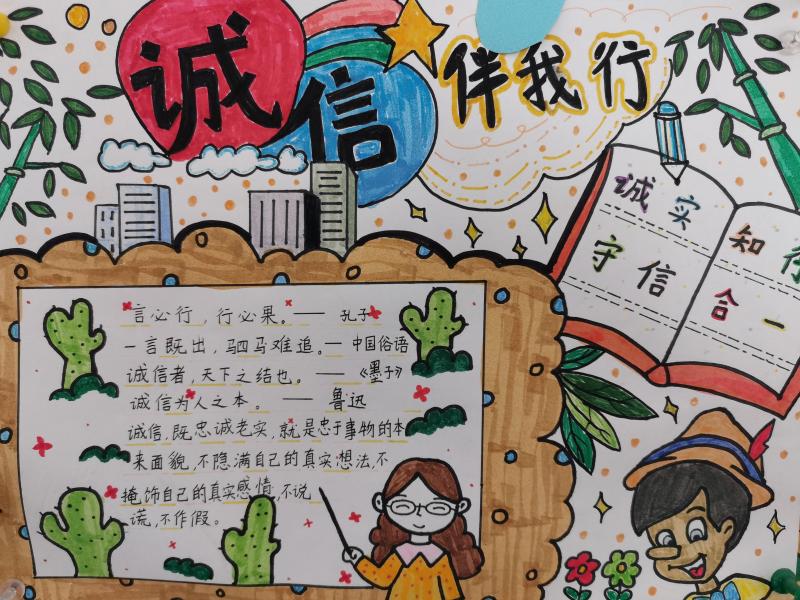 诚信伴我行
诚实
守信
知行
合一
言必行，行必果。—— 孔子
一言既出，驷马难追。— 中国俗语
诚信者，天下之结也。——《墨子》
诚信为人之本。—— 鲁迅
诚信，既忠诚老实，就是忠于事物的本
来面貌，不隐满自己的真实想法，不
掩饰自己的真实感情，不说
谎，不作假。